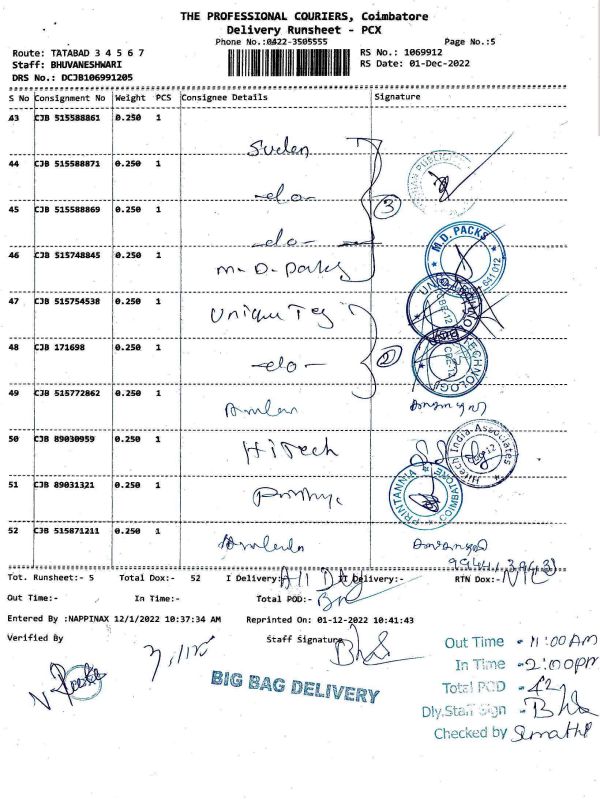 THE PROFESSIONAL COURIERS, Coimbatore
Delivery Runsheet - PCX
Phone No.:0422-3505555 Page No.:5
Route: TATABAD 3 4 5 6 7 RS No.: 1069912
Staff: BHUVANESHWARI RS Date: 01-Dec-2022
DRS No.: DCJB106991205
S No Consignment No Weight PCS Consignee Details Signature
43 CJB 515588861 0.250 1
44 CJB 515588871 0.250 1
-do-
45 CJB 515588869 0.250 1 3
-do-
46 CJB 515748845 0.250 1 M.D. PACKS
M-D. Packs 641 012
47 CJB 515754538 0.250 1
Unique
48 CJB 171698 0.250 1 2
-do-
49 CJB 515772862 0.250 1
50 CJB 89030959 0.250 1 HiTech HiTech India Associates
51 CJB 89031321 0.250 1 PRINTANNIA COIMBATORE
52 CJB 515871211 0.250 1
Tot. Runsheet:- 5 Total Dox:- 52 I Delivery: All Dly II Delivery:- RTN Dox:- NIL
Out Time:- In Time:- Total POD:-
Entered By :NAPPINAX 12/1/2022 10:37:34 AM Reprinted On: 01-12-2022 10:41:43
Verified By Staff Signature
BIG BAG DELIVERY
Out Time - 11:00AM
In Time - 2:00pm
Total POD - 42
Dly.Staff Sign -
Checked by